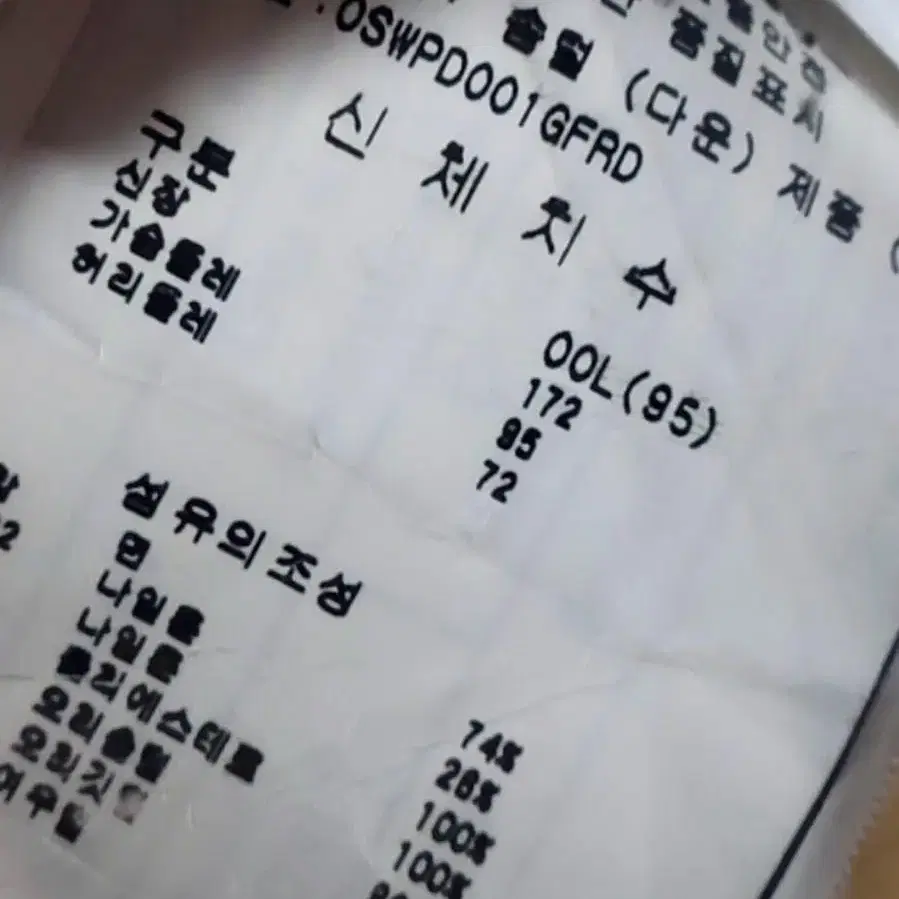 품질표시
솜털 (다운) 제품 (
:OSWPD001GFRD
신체치수
구분 OOL(95)
신장 172
가슴둘레 95
허리둘레 72
섬유의조성
면 74%
나일론 26%
나일론 100%
폴리에스테르 100%
오리솜털
오리깃털
여우털